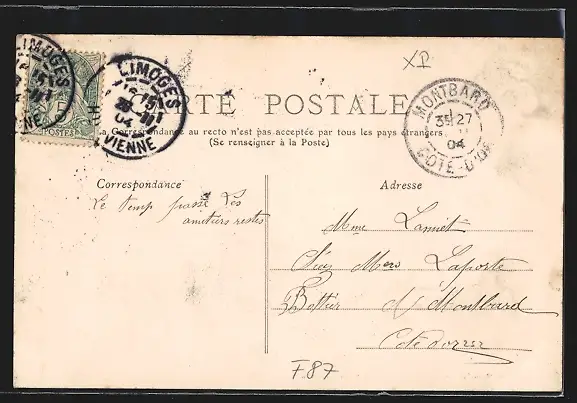 XP
LIMOGES
5
POSTES
LIMOGES
04
VIENNE
CARTE POSTALE
MONTBARD
27
04
COTE-D'OR
La Correspondance au recto n'est pas acceptée par tous les pays étrangers
(Se renseigner à la Poste)
Correspondance
Adresse
Le temp passe Les
amitiers restes
Mme Lamiet
Chez Mers Laporte
Bottier à Montbard
Cote dorrer
F87